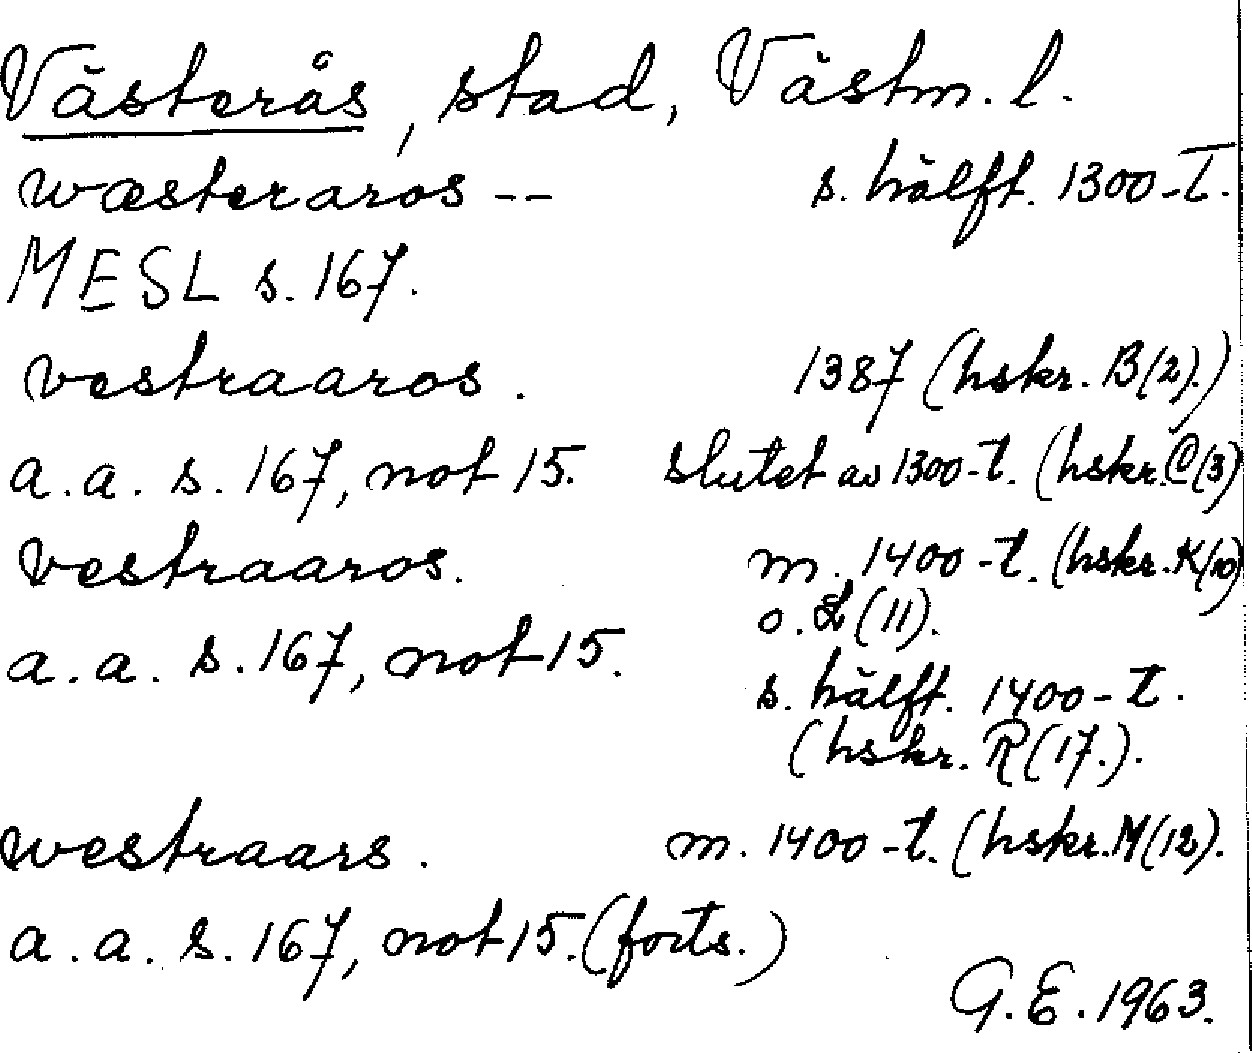 Västerås, stad, Västm. l.
wæsteraros -- s. hälft. 1300-t.
MESL s. 167.
vestraaros. 1387 (hskr. B(2).)
a.a. s. 167, not 15. slutet av 1300-t. (hskr. C(3)
vestraaros. m. 1400-t. (hskr. K(10)
o. L(11).
a.a. s. 167, not 15.
s. hälft. 1400-t.
(hskr. R(17.).
westraars. m. 1400-t. (hskr. M(12).
a.a. s. 167, not 15. (forts.)
G.E. 1963.